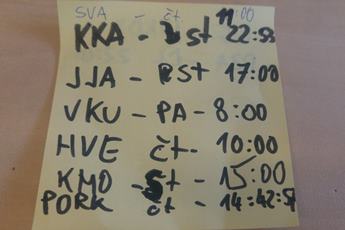 SVA - čt 11:00
KKA - st 22:5
JJA - st 17:00
VKU - PA - 8:00
HVE čt - 10:00
KMO - St - 15:00
PORK čt - 14:42:5